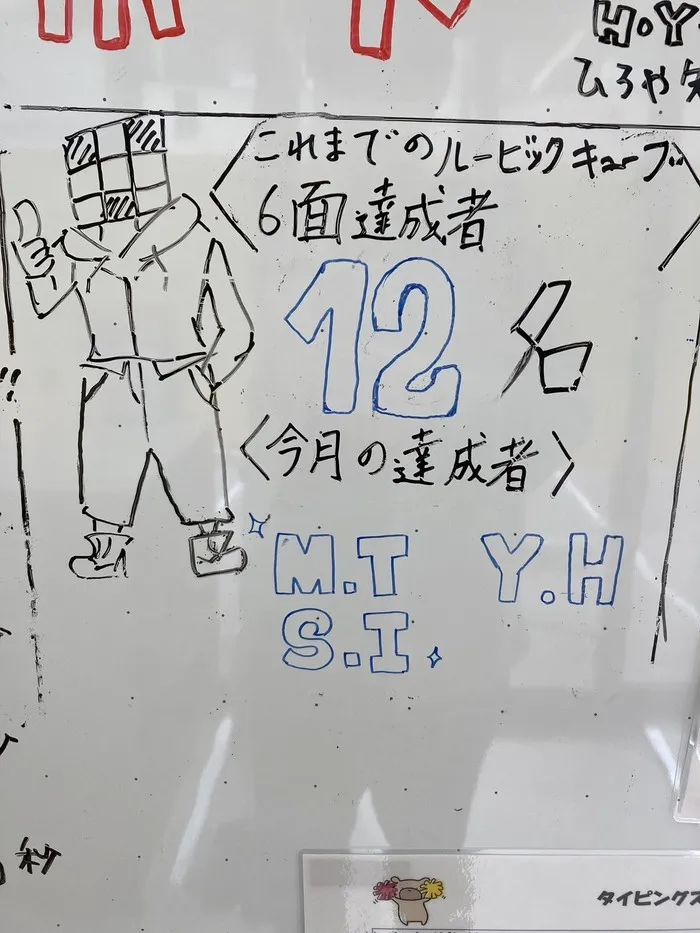 H・Y
ひろや
〈これまでのルービックキューブ
6面達成者
12名
〈今月の達成者〉
M.T Y.H
S.I.
秒
タイピングス